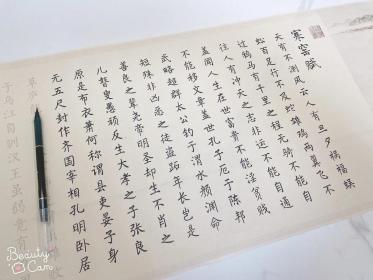 寒窑赋
天有不测风云人有旦夕祸福蜈
蚣百足行不及蛇雄鸡两翼飞不
过鸦马有千里之程无骑不能自
往人有冲天之志非运不能自通
盖闻人生在世富贵不能淫贫贱
不能移文章盖世孔子厄于陈邦
武略超群太公钓于渭水颜渊命
短殊非凶恶之徒盗跖年长岂是
善良之辈尧帝明圣却生不肖之
儿瞽叟愚顽反生大孝之子张良
原是布衣萧何称谓县吏晏子身
无五尺封作齐国宰相孔明卧居
草
于乌江自刎汉王虽弱竟
Beauty Cam